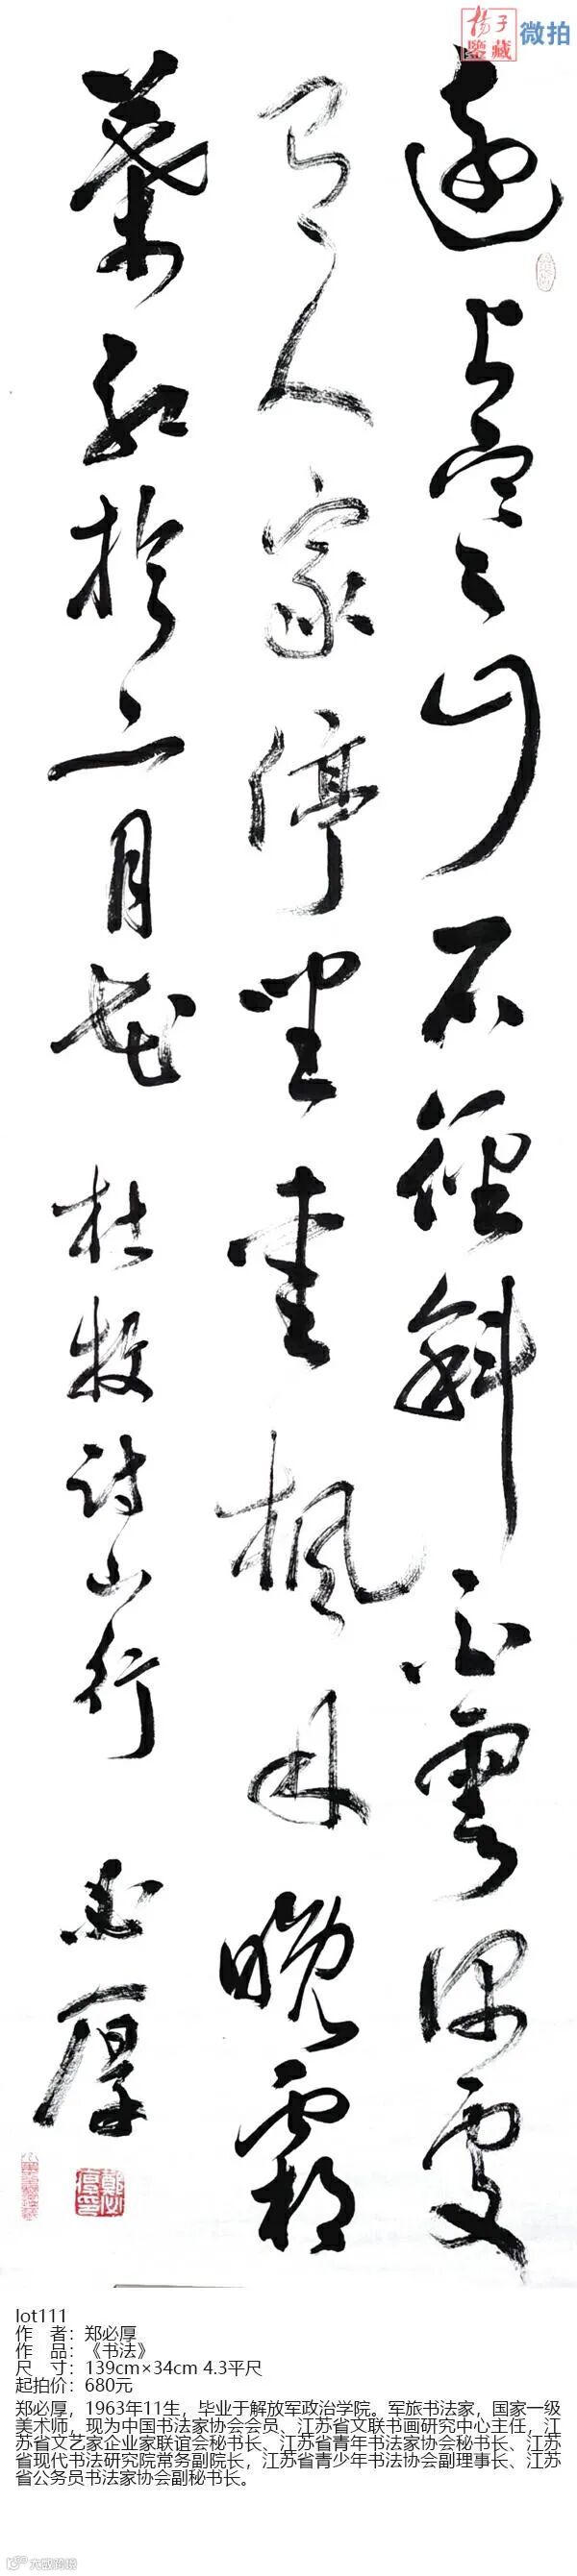 楊子
鑒藏 微拍
遠上寒山石徑斜白雲深處
有人家停坐愛楓林晚霜
葉紅於二月花 杜牧詩山行 必厚
鄭必厚印
lot111
作 者：郑必厚
作 品：《书法》
尺 寸：139cm×34cm 4.3平尺
起拍价：680元
郑必厚，1963年11生，毕业于解放军政治学院。军旅书法家，国家一级
美术师，现为中国书法家协会会员、江苏省文联书画研究中心主任，江
苏省文艺家企业家联谊会秘书长、江苏省青年书法家协会秘书长、江苏
省现代书法研究院常务副院长，江苏省青少年书法协会副理事长、江苏
省公务员书法家协会副秘书长。
大数跨境